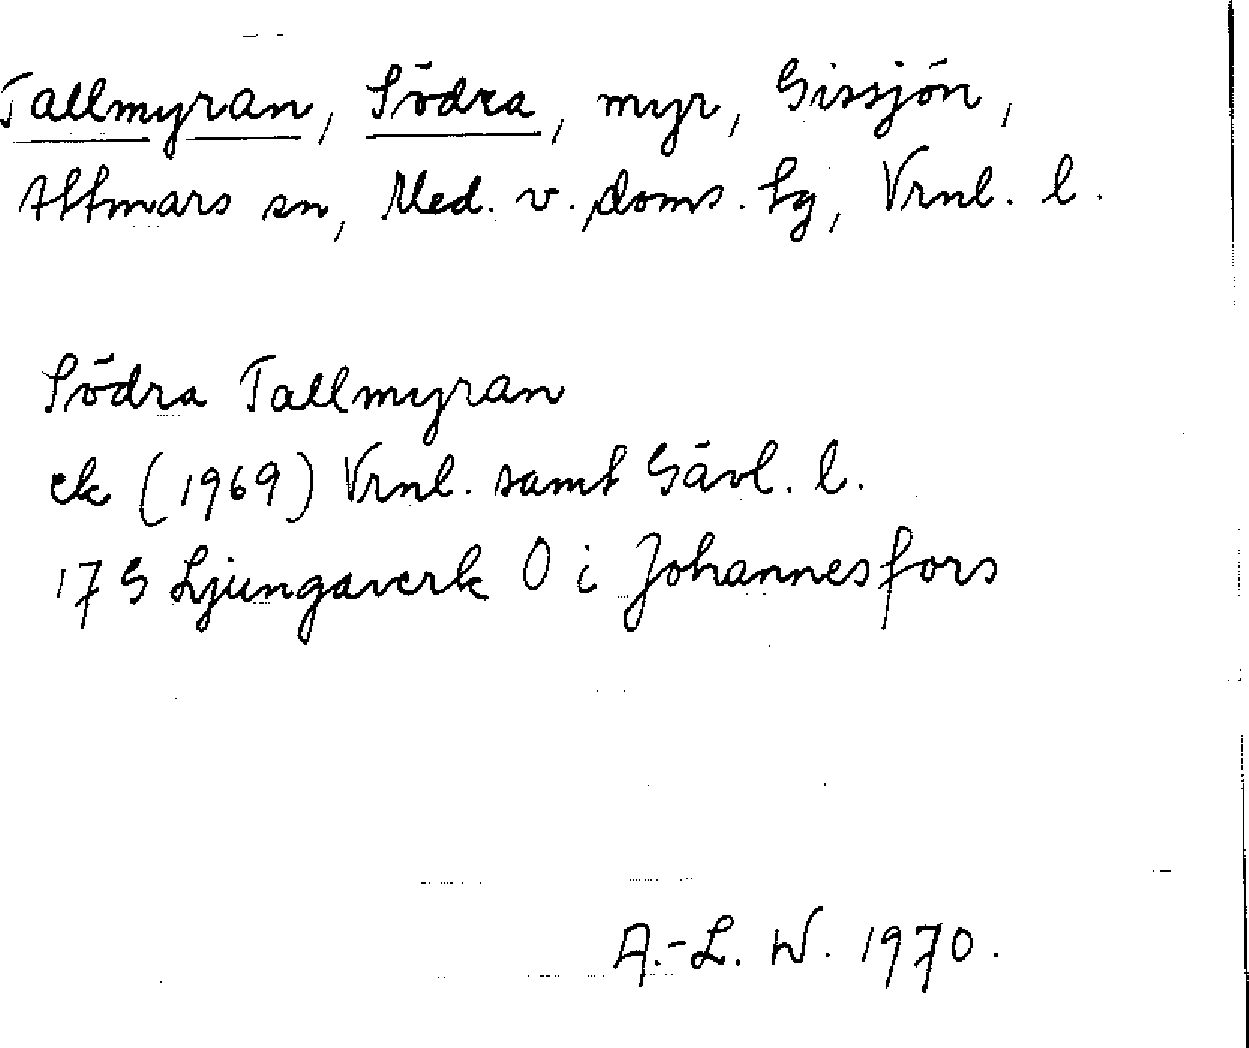 Tallmyran, Södra, myr, Gissjön,
Attmars sn, Med. v. doms. tg, Vrnl. l.
Södra Tallmyran
ek (1969) Vrnl. samt Gävl. l.
17 G Ljungaverk O i Johannesfors
A.-L. W. 1970.